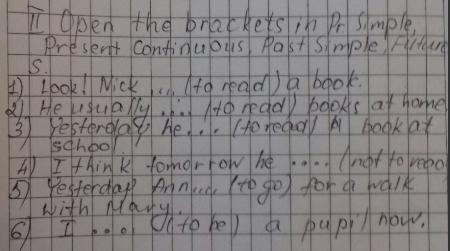 II Open the brackets in Pr. Simple,
Present Continuous, Past Simple, Future
S.
1) Look! Nick ... (to read) a book.
2) He usually .... (to read) books at home
3) Yesterday he... (to read) A book at
school.
4) I think tomorrow he .... (not to read
5) Yesterday Ann.... (to go) for a walk
with Mary.
6) I .... (to be) a pupil now.